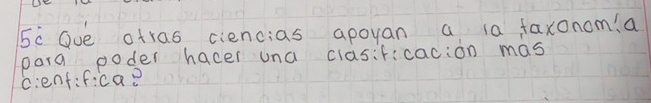 5¿ Que otras ciencias apoyan a la taxonomía
para poder hacer una clasificación mas
cientifica?